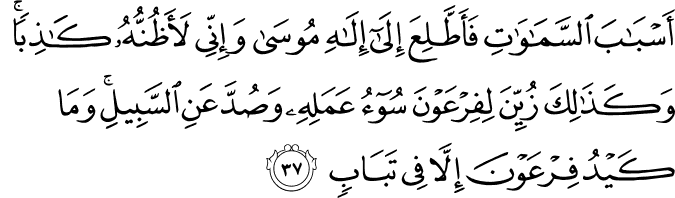 أَسْبَـٰبَ ٱلسَّمَـٰوَٰتِ فَأَطَّلِعَ إِلَىٰٓ إِلَـٰهِ مُوسَىٰ وَإِنِّى لَأَظُنُّهُۥ كَـٰذِبًا ۚ
وَكَذَٰلِكَ زُيِّنَ لِفِرْعَوْنَ سُوٓءُ عَمَلِهِۦ وَصُدَّ عَنِ ٱلسَّبِيلِ ۚ وَمَا
كَيْدُ فِرْعَوْنَ إِلَّا فِى تَبَابٍ ٣٧